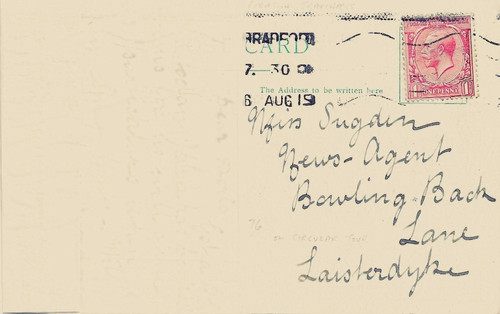 BRADFORD
CARD
7. 30
6 AUG 19
The Address to be written here
ONE PENNY
Miss Sugden
News-Agent
Bowling-Back
Lane
Laisterdyke
76
CIRCULAR TOUR